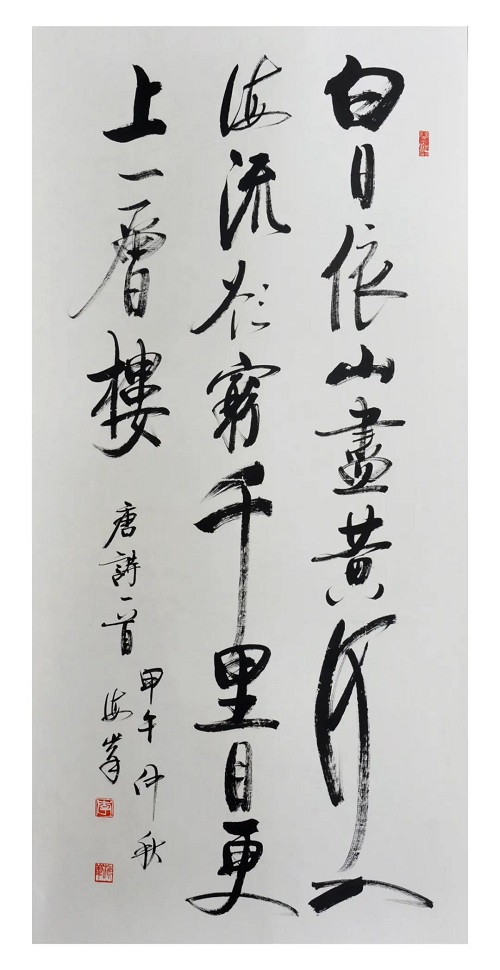 白日依山盡黄河入
海流欲窮千里目更
上一層樓
唐詩一首
甲午仲秋
海峯